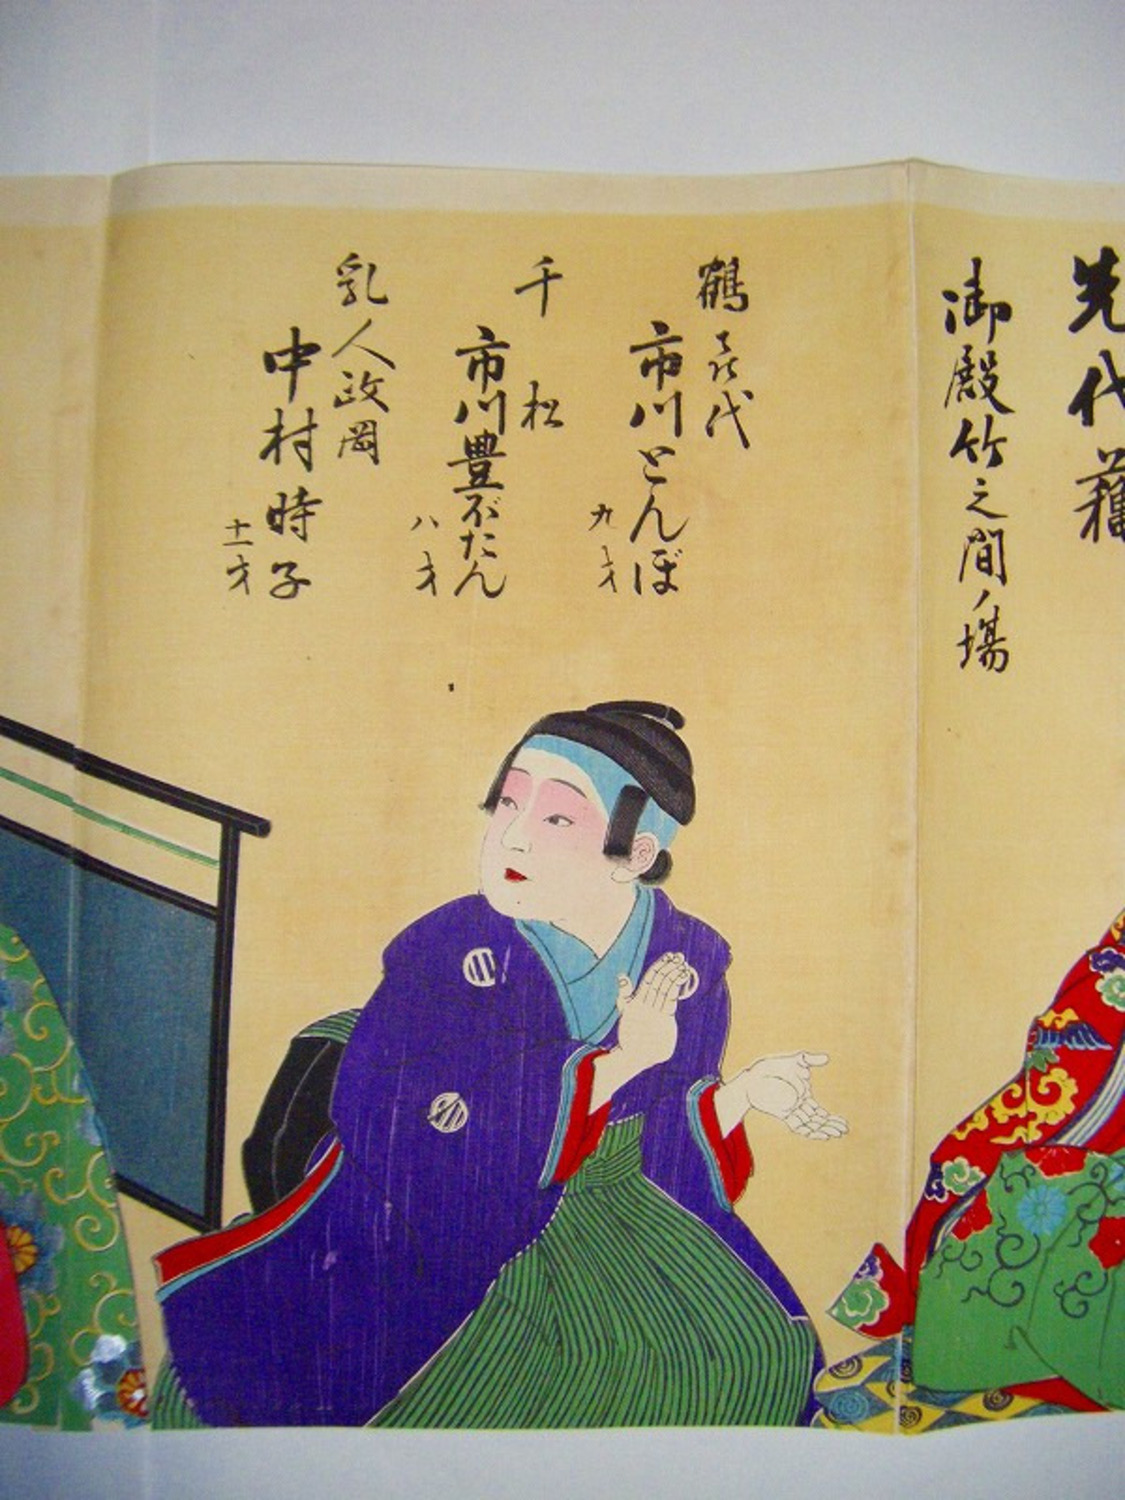 先代萩
御殿竹之間ノ場
鶴喜代
市川とんぼ
九才
千松
市川豊ぶたん
八才
乳人政岡
中村時子
十一才